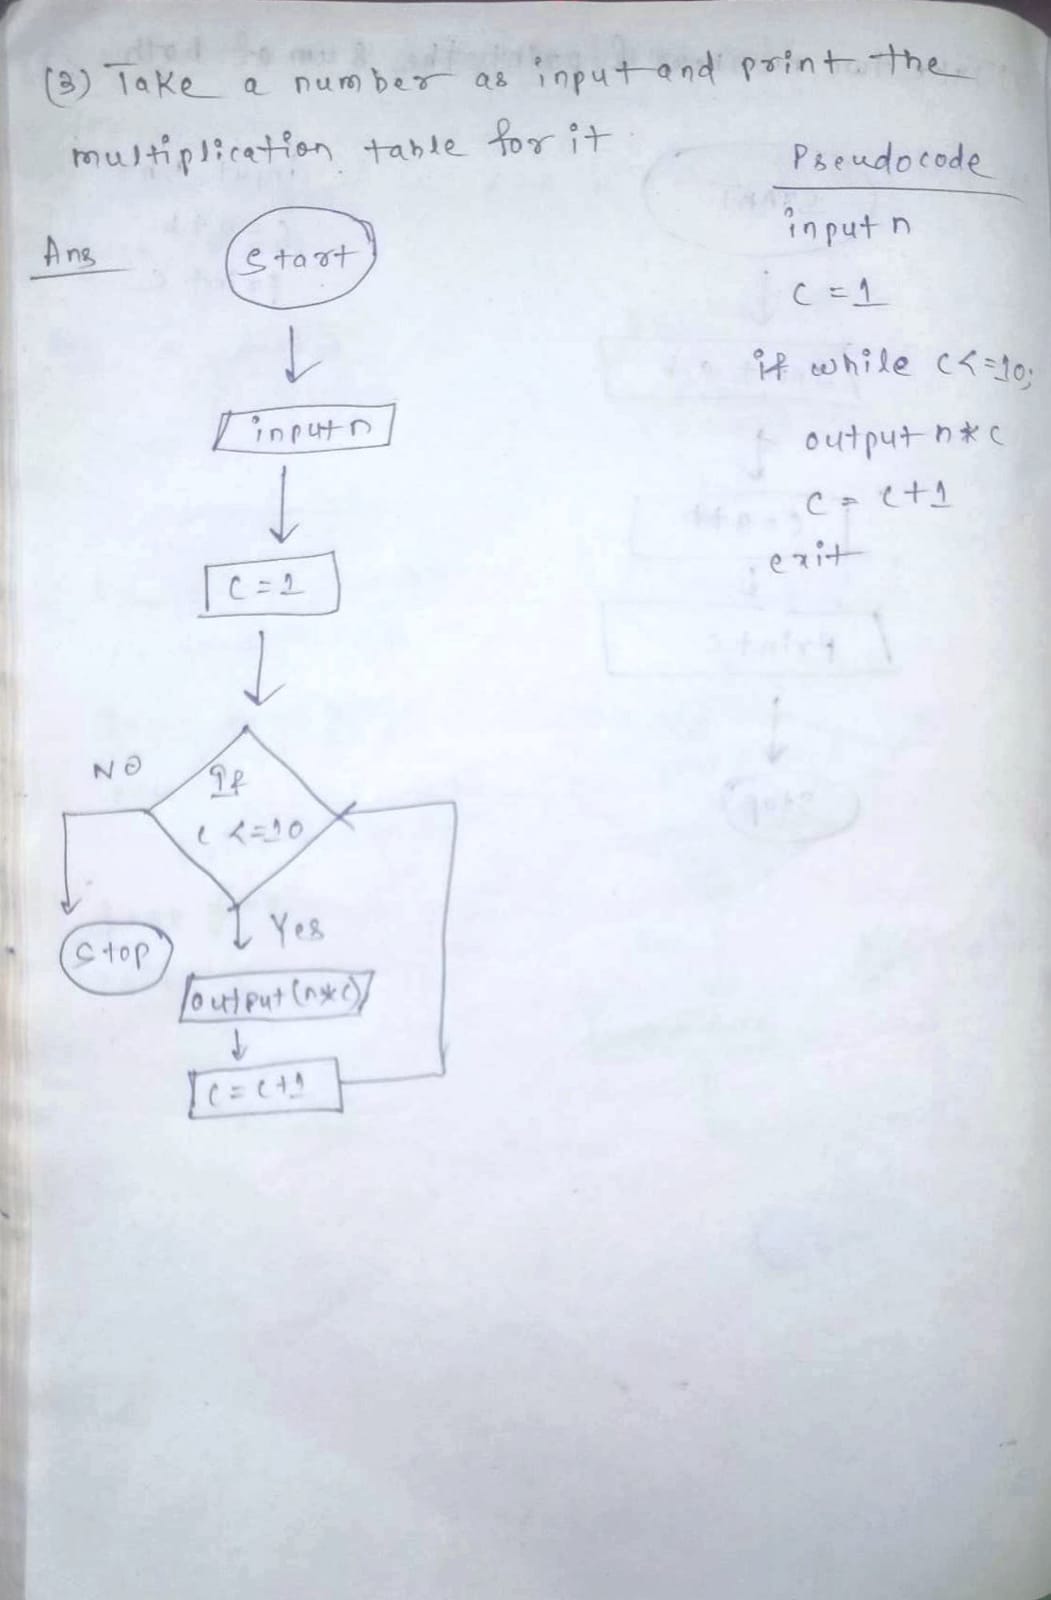 (3) Take a number as input and print the
multiplication table for it
Ans
Start
input n
C = 1
If
c <=10
NO
Yes
Stop
output (n*c)
c = c+1
Pseudocode
input n
c = 1
if while c<=10;
output n*c
c = c+1
exit